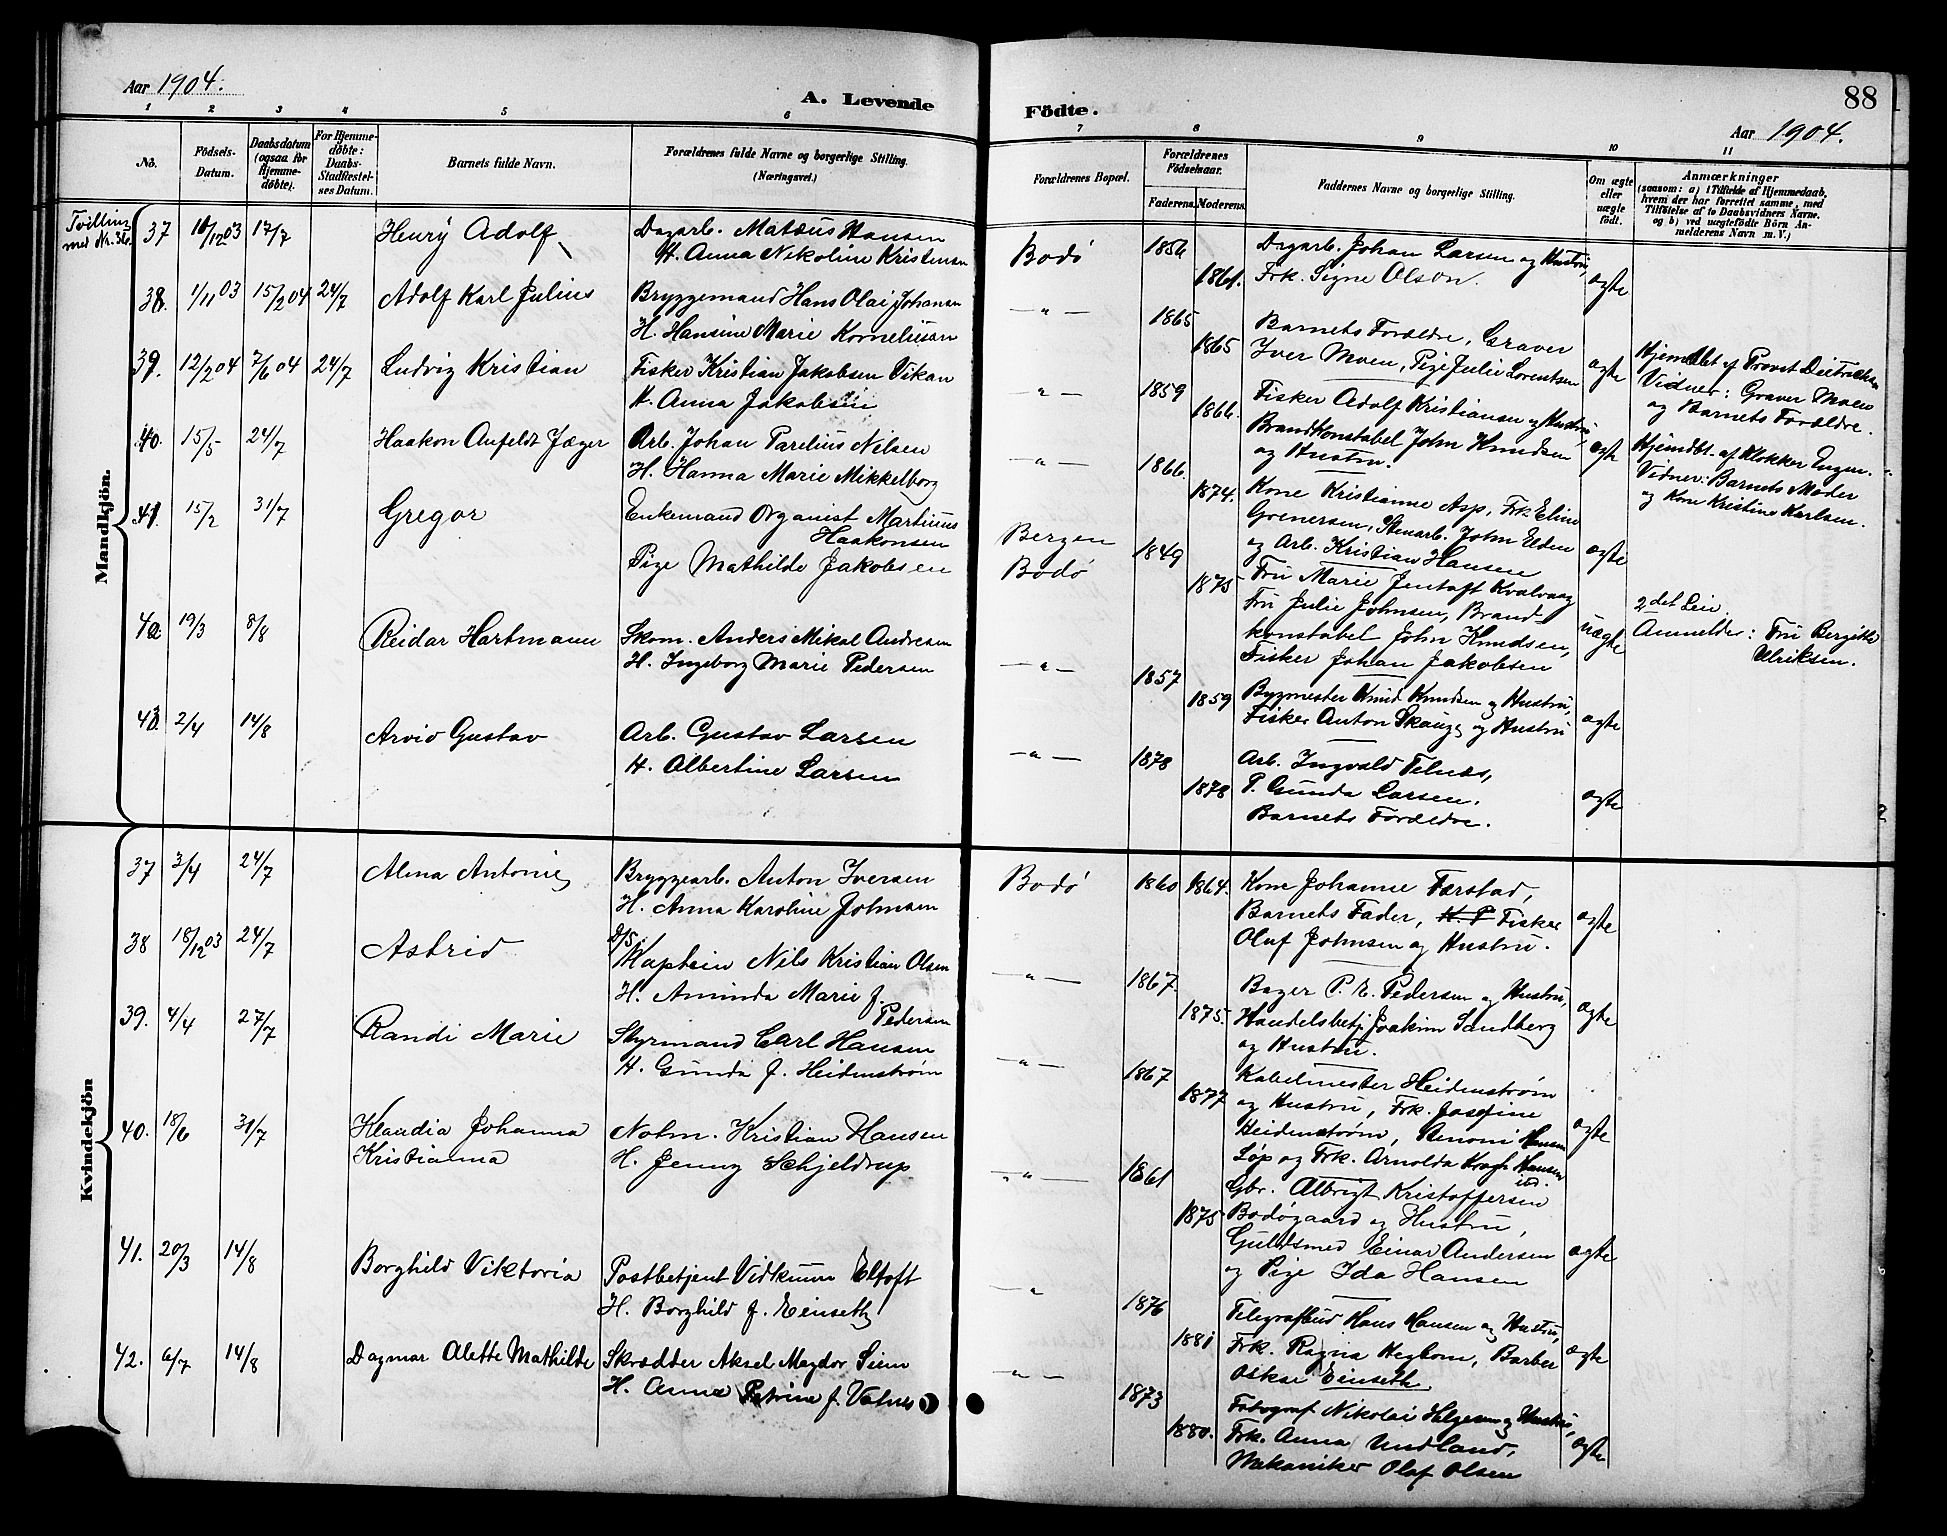 Aar 1904.
A. Levende Födte.
88
Aar 1904.
1 2 3 4 5 6 7 8 9 10 11
No.
Födsels-Datum.
Daabsdatum (ogsaa for Hjemme-døbte).
For Hjemme-døbte: Daabs-Stadfæstel-ses Datum.
Barnets fulde Navn.
Forældrenes fulde Navne og borgerlige Stilling. (Næringsvei.)
Forældrenes Bopæl.
Forældrenes Födselsaar.
Faderens. Moderens.
Faddernes Navne og borgerlige Stilling.
Om ægte eller uægte født.
Anmærkninger
(saasom: a) i Tilfælde af Hjemmedaab, hvem der har forrettet samme, med Tilføielse af to Daabsvidners Navne. og b) ved uægtefødte Börn An-melderens Navn m. V.)
Mandkjön.
Tvilling med No.
37 12/03 17/7 Henry Adolf
Dagarb. Matæus Hansen
H. Anna Nikoline Kristensen
Bodø 1856 1861.
Dagarb. Johan Larsen og Hustru,
Frk. Signe Olson.
ægte
38. 1/11 03 15/2 04 24/7 Adolf Karl Julius
Bryggemand Hans Olai Johansen
H. Hansine Marie Korneliusen
— " — 1865 1865
Barnets Forældre, Graver
Iver Moen, Pige Julie Lorentsen
ægte
Hjemdbt af Provst Deitrichsen
Vidner: Graver Moen
og Barnets Forældre.
39. 12/2 04 7/6 04 24/7 Ludvig Kristian
Fisker Kristian Jakobsen Vikan
H. Anna Jakobsen
— " — 1859 1866.
Fisker Adolf Kristiansen og Hustru,
Brandkonstabel John Knudsen
og Hustru.
ægte
Hjemdbt. af Klokker Engen.
Vidner: Barnets Moder
og Kone Kristine Karlsen.
40. 15/5 24/7 Haakon Anfeldt Jæger
Arb. Johan Parelius Nilsen
H. Hanna Marie Mikkelborg
— " — 1866. 1874.
Kone Kristianne Asp, Frk Eline
Grenersen, Stenarb. John Elden
og Arb. Kristian Hansen
ægte
41. 15/2 31/7 Gregor
Enkemand Organist Martinus
Haakonsen
Pige Mathilde Jakobsen
Bergen
Bodø
1849 1875
Fru Marie Jentoft Kvalvaag
Fru Julie Johnsen, Brand-
konstabel John Knudsen,
Fisker Johan Jakobsen
uægte
2det Leie
Anmelder: Fru Bergitte
Ulriksen.
42 19/3 8/8 Reidar Hartmann
Skom. Anders Mikal Andresen
H. Ingeborg Marie Pedersen
— " — 1857 1859
Bygmester Knud Knudsen og Hustru,
Fisker Anton Skauge og Hustru
ægte
43. 2/4 14/8 Arvid Gustav
Arb. Gustav Larsen
H. Albertine Larsen
— " — 1878 1878
Arb. Ingvald Telnæs,
P. Gunda Larsen.
Barnets Forældre.
ægte
Kvindekjön
37 3/4 24/7 Alma Antonie
Bryggearb. Anton Iversen
H. Anna Karoline Johnsen
Bodø 1860 1864.
Kone Johanne Færstad,
Barnets Fader, H. P Fisker
Oluf Johnsen og Hustru.
ægte
38 18/12 03 24/7 Astrid
D/S. Kaptein Nils Kristian Olsen
H. Aminda Marie f.
Pedersen
— " — 1867. 1875.
Bager P. E. Pedersen og Hustru,
Handelsbetj Joakim Sandberg
og Hustru.
ægte
39. 4/4 27/7 Randi Marie
Styrmand Carl Hansen
H. Gunda f. Heidenstrøm
— " — 1867 1877
Kabelmester Heidenstrøm
og Hustru, Frk. Josefine
Heidenstrøm, Benoni Hansen
Løp og Frk. Arnolda Krogh Hansen
ibd.
ægte
40. 18/6 31/7 Klaudia Johanna
Kristianna
Notm. Kristian Hansen
H. Jenny Schjeldrup
— " — 1861 1875
Gbr. Albrigt Kristoffersen
Bodøgaard og Hustru,
Guldsmed Einar Andersen
og Pige Ida Hansen
ægte
41. 20/3 14/8 Borghild Viktoria
Postbetjent Vidkunn Eltoft
H. Borghild f. Einseth
" 1876 1881
Telegrafbud Hans Hansen og Hustru,
Frk. Ragna Hegbom, Barber
Oskar Einseth
ægte
42. 6/7 14/8 Dagmar Alette Mathilde
Skrædder Aksel Magdor Siem
H. Anna Petrine f. Vatnes
— " — 1873 1880.
Fotograf Nikolai Helgesen og Hustru,
Frk. Anna Undland,
Mekaniker Olaf Olsen
ægte